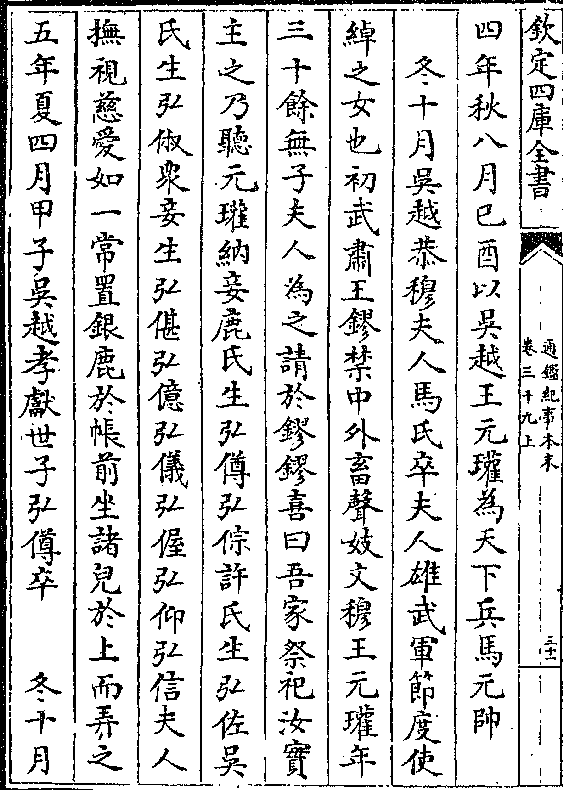 欽定四庫全書
通鑑紀事本末
卷三十九上
三十二
四年秋八月己酉以吳越王元瓘為天下兵馬元帥
冬十月吳越恭穆夫人馬氏卒夫人雄武軍節度使
綽之女也初武肅王鏐禁中外畜聲妓文穆王元瓘年
三十餘無子夫人為之請於鏐鏐喜曰吾家祭祀汝實
主之乃聽元瓘納妾鹿氏生弘僔弘倧許氏生弘佐吳
氏生弘俶衆妾生弘偡弘億弘儀弘偓弘仰弘信夫人
撫視慈愛如一常置銀鹿於帳前坐諸兒於上而弄之
五年夏四月甲子吳越孝獻世子弘僔卒 冬十月